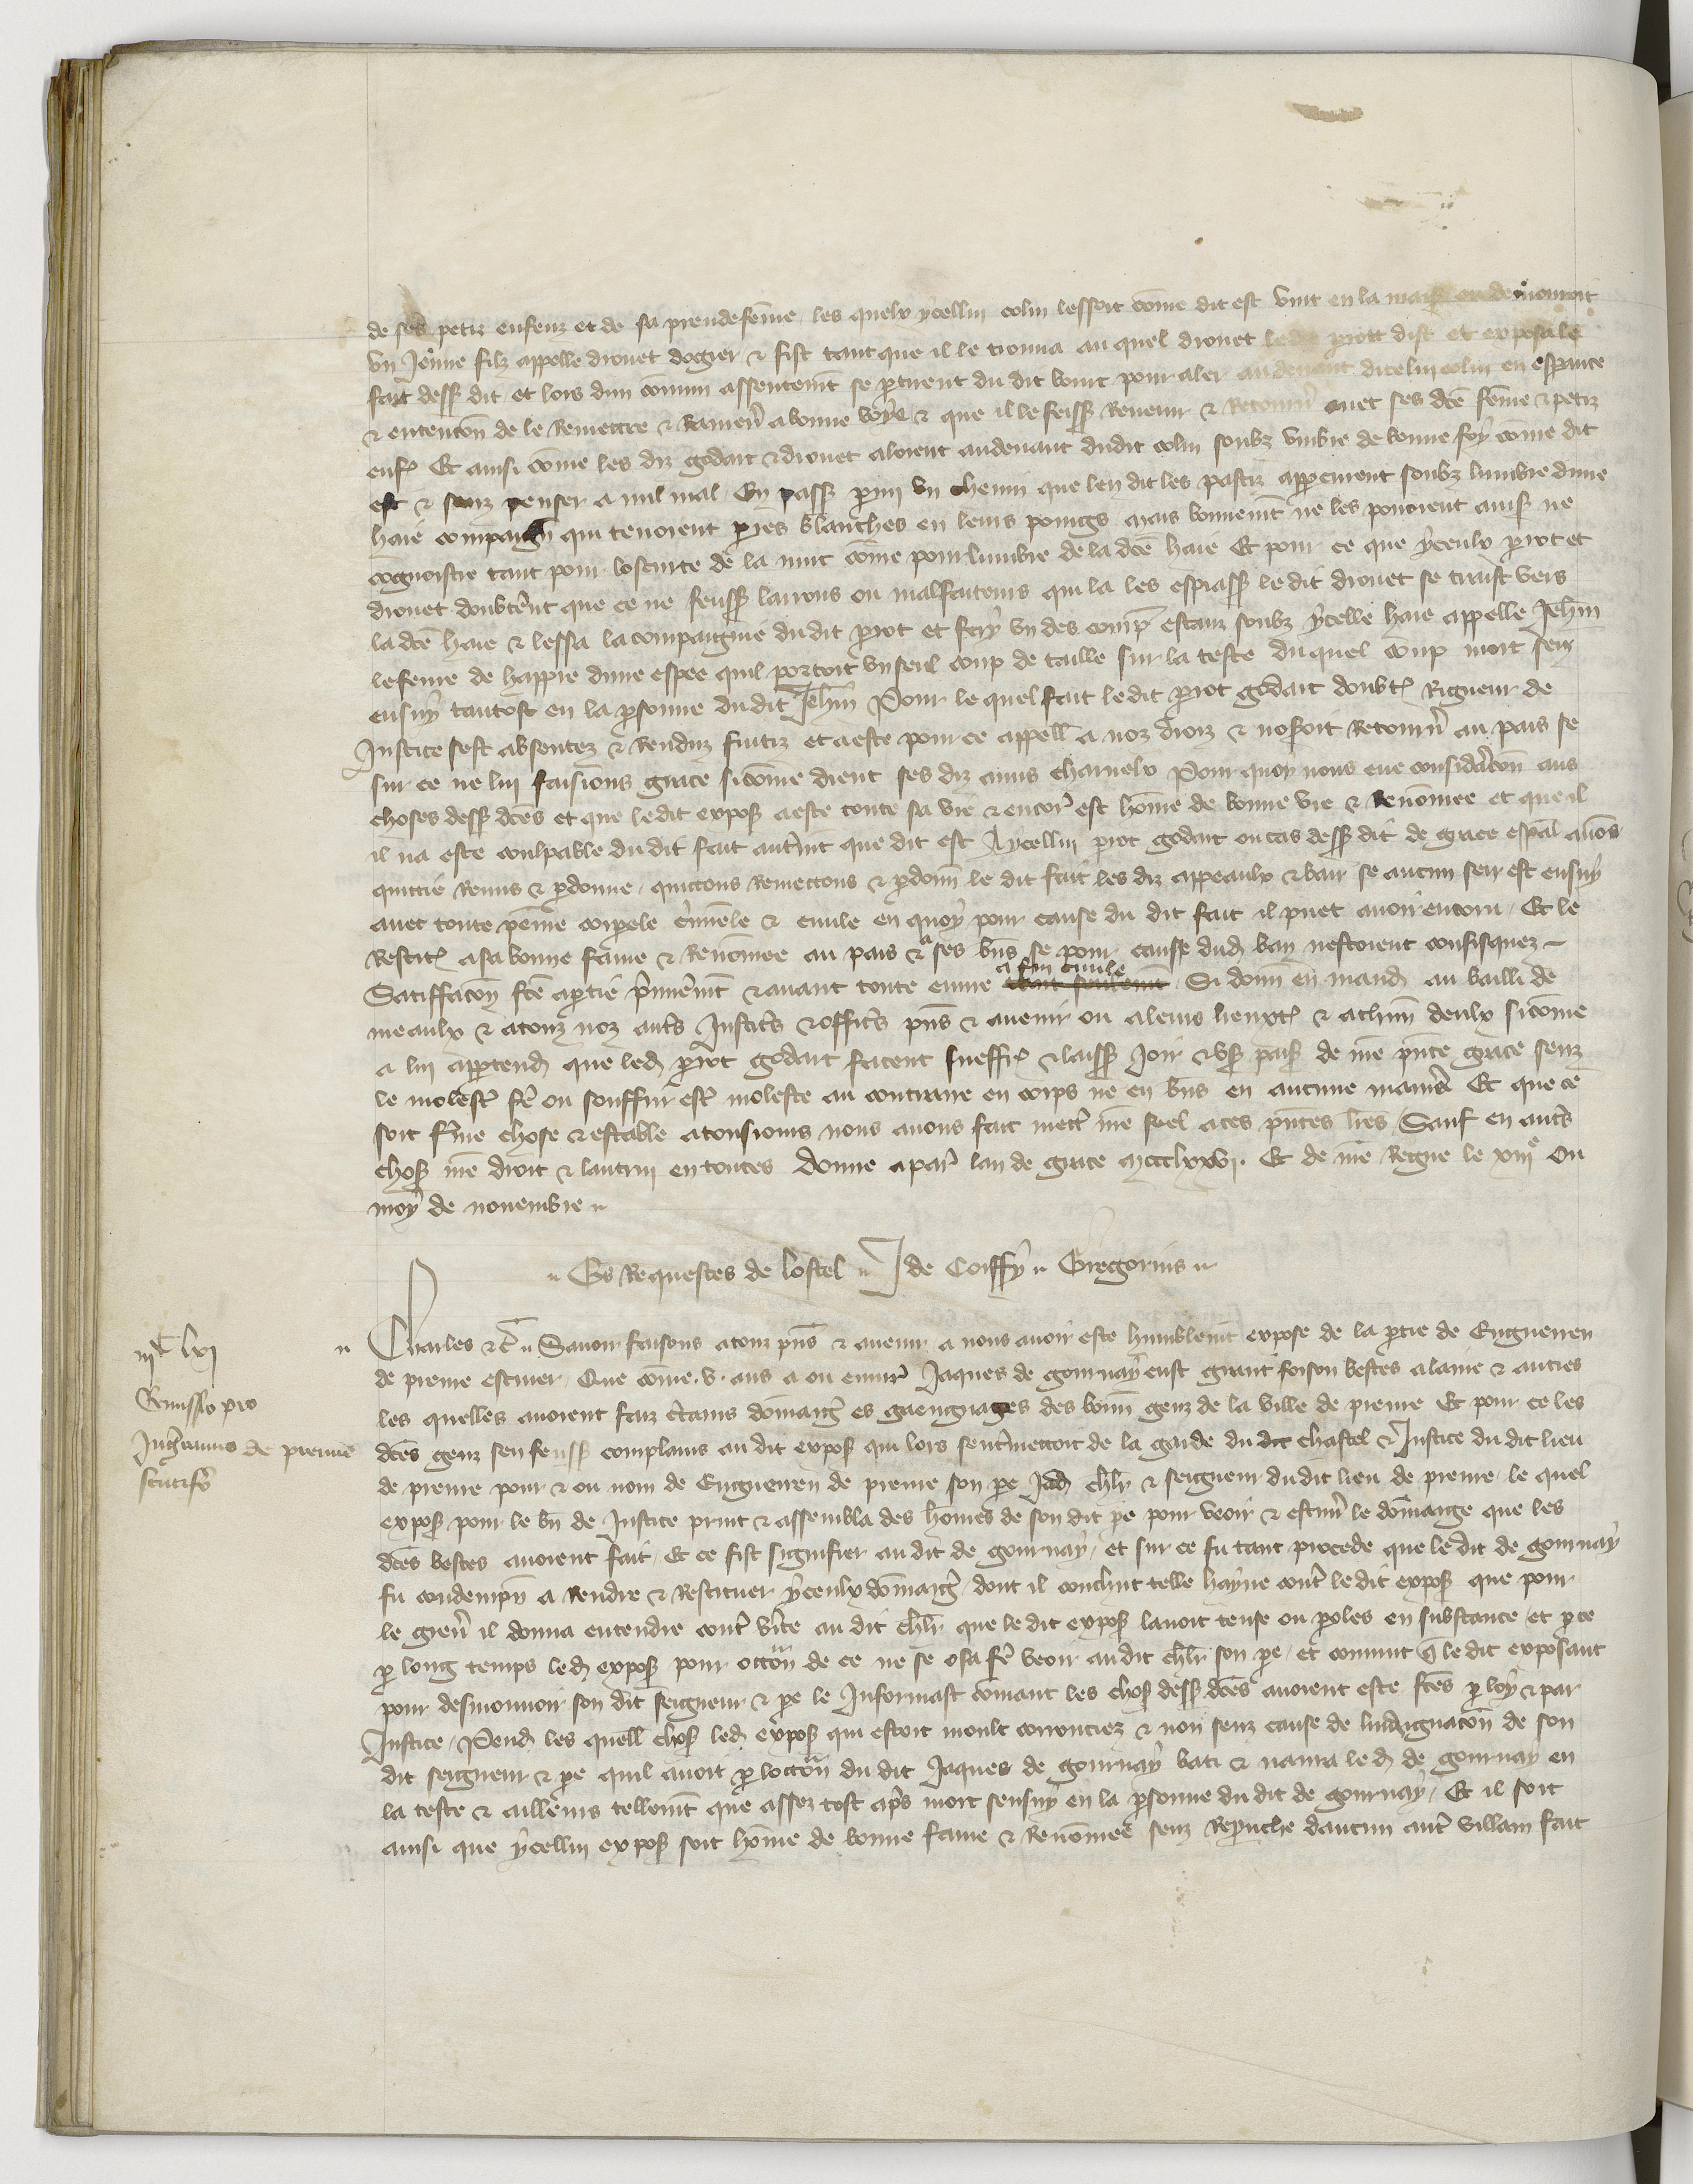 de ses petiz enfenz et de sa preudefẽme les quelx ycellui colin lessoit cõme dit est vint en la demouroit
vn Jeune filz appelle drouet dogier & fist tant que il le trouua au quel drouet ledit prott dist et exposa le
fait dess dit et lors dun cõmun assentemt se ptirent du dit bourc pour aler au deuant dicelui colin en espance
& entencõn de le Remettre & Ramenr a bonne voye & que il le feiss Reuenir & Retournr auec ses dcẽ fẽme & petiz
enf Et ainsi cõme les diz godart & drouet aloient audeuant dudit colin soubz vmbre de bonne foy cõme dit
est & senz penser a nul mal En pass pmi vn chemin que len dit les pastiz appcurent soubz lumbre dune
haie compaign qui tenoient pres blanches en leurs poings mais bonnemt ne les pouoient auis ne
cognoistre tant pour loscurte de la nuit cõme pour lumbre de la dcẽ haie Et pour ce que yceulx prot et
drouet doubtent que ce ne feuss larrons ou malfaiteurs qui la les espiass le dit drouet se traist vers
la dcẽ haie & lessa la compaignie du dit prot et fery vn des comp estanz soubz ycelle haie appelle Jehñ
lefeure de happre dune espee quil portoit vn seul coup de taille sur la teste duquel coup mort sen
ensuy tantost en la psonne dudit Jehñ Pour le quel fait ledit prot godart doubt Rigueur de
Justice sest absentez & Renduz fuitiz et a este pour ce appell a noz droiz & nosoit Retournr au pais se
sur ce ne lui faisions grace si cõme dient ses diz amis charnelx Pour quoy nous eue consideracõn aus
choses dess dcẽs et que ledit expos a este toute sa vie & encor est hõme de bonne vie & Renõmee et que il
il na este coulpable du dit fait autremt que dit est A ycellui prot godart ou cas dess dit de grace espal auõs
quictie Remis & pdonne quictons Remectons & pdonñ le dit fait les diz appeaulx & ban se aucun sen est ensuy
auec toute peine corpele crimele & ciuile en quoy pour cause du dit fait il puet auoir encoru Et le
Restit a sa bonne fame & Renõmee au pais & a ses bñs se pour cause dud ban nestoient confisquez
Satiffacõn fcẽ a ptie premieremt & auant toute euure a fin ciuile Si donñ en mand au bailli de
meaulx & a touz noz autres Justic & offic pñs & auenir ou a leurs lieuxt & a chũn deulx si cõme
a lui apptend que led prot godart facent sueffr & laiss Joir & vs pais de nrẽ pñte grace senz
le molest fe ou souffrir est moleste au contraire en corps ne en bñs en aucune maniere Et que ce
soit ferme chose & estable a tousiours nous auons fait mectr nrẽ seel a ces pñtes lres Sauf en autres
chos nrẽ droit & lautrui en toutes donne a par lan de grace mccclxxvj. Et de nrẽ Regne le xiijᵉ Ou
moys de nouembre
Es Requestes de lostel J de Coiffy Gregorius
iijᶜ lvj
Remissio pro
Jnguerranno de preure
scutifero
Charles &c Sauoir faisons a touz pñs & auenir a nous auoir este humblemt expose de la ptie de Engueren
de preure escuier Que cõme .v. ans a ou enuir Jaques de gournay eust grant foison bestes a laine & autres
les quelles auoient faiz certains dõmaig es gaengnages des bonñ genz de la ville de preure Et pour ce les
dcẽs genz sen feuss complains au dit expos qui lors sentremettoit de la garde du dit chastel & Justice du dit lieu
de preure pour & ou nom de Engueuren de preure son pe Jad chlr & seigneur du dit lieu de preure le quel
expos pour le bñ de Justice print & assembla des hõmes de son dit pe pour veoir & estimr le dõmaige que les
dcẽs bestes auoient fait Et ce fist signifier au dit de gournay et sur ce fu tant procede que le dit de gournay
fu condempn a Rendre & Restituer yceulx dõmaig dont il conchut telle hayne contr le dit expos que pour
le greur il donna entendre contr verite au dit chlr que le dit expos lauoit tense ou proles en substance et p ce
p long temps led expos pour occoñ de ce ne se osa fe veoir au dit chlr son pe et conuint q le dit exposant
pour desmouuoir son dit seigneur & pe le Informast cõmant les chos dess dcẽs auoient este fcẽs p loy & par
Justice Pend les quell chos led expos qui estoit moult courouciez & non senz cause de lindignacõn de son
dit seigneur & pe quil auoit p loccoñ du dit Jaques de gournay bati & naura led de gournay en
la teste & ailleurs tellemt que assez tost aps mort sensuy en la psonne du dit de gournay Et il soit
ainsi que ycellui expos soit hõme de bonne fame & Renõmee senz Reprouche daucun autre villain fait